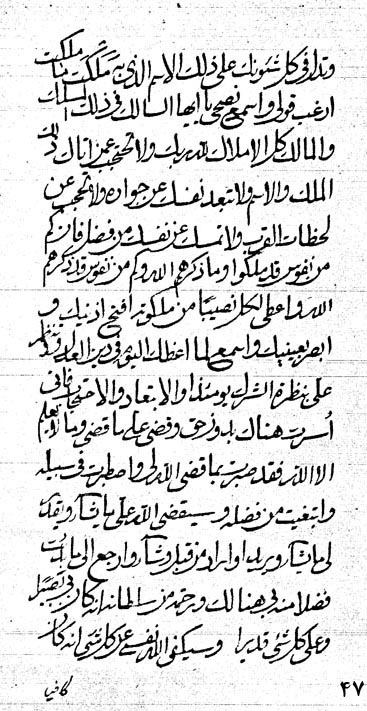 وتدارفى كل شئونك على ذلك الاسم الذى به ملكت ما ملكت
ارغب قولى واسمع نصحى يا ايها السالك فى ذلك السبيل
والمالك كل الاملاك لله ربك ولا تحتجب عمن اتاك ذلك
الملك والاسم ولا تبعد نفسك عن جواره ولا تحجب عن
لحظات القرب ولا تمسك عن نفسك من فضل فان كم
من نفوس قد ملكوا وما ذكرهم الله وكم من نفوس قد ذكرهم
الله واعطى لكل نصيبا من ملكوته افتح اذنيك و
ابصر بعينيك واسمع لما اعظك الىّ فى دين الله
على نظرة يومئذ والابعاد والاحتجاب فى
اسرت هناك بلا حق وقضى علىّ ما قضى وما لا يعلم
الا الله فقد صبرت بما قضى الله لى واصطبرت فى سبيله
وابتغيت من فضله وسيقضى الله على ما يشاء ويقدر
لى ما يشاء ويريد او اراد من قبل وشاء وارجع الى ما
فضلا منه فى هنالك ورحمة من انه كان بى بصيرا
وعلى كل شئ قديرا وسيكفى الله نفسى عن كل شئ انه كان
كافيا
۴۷